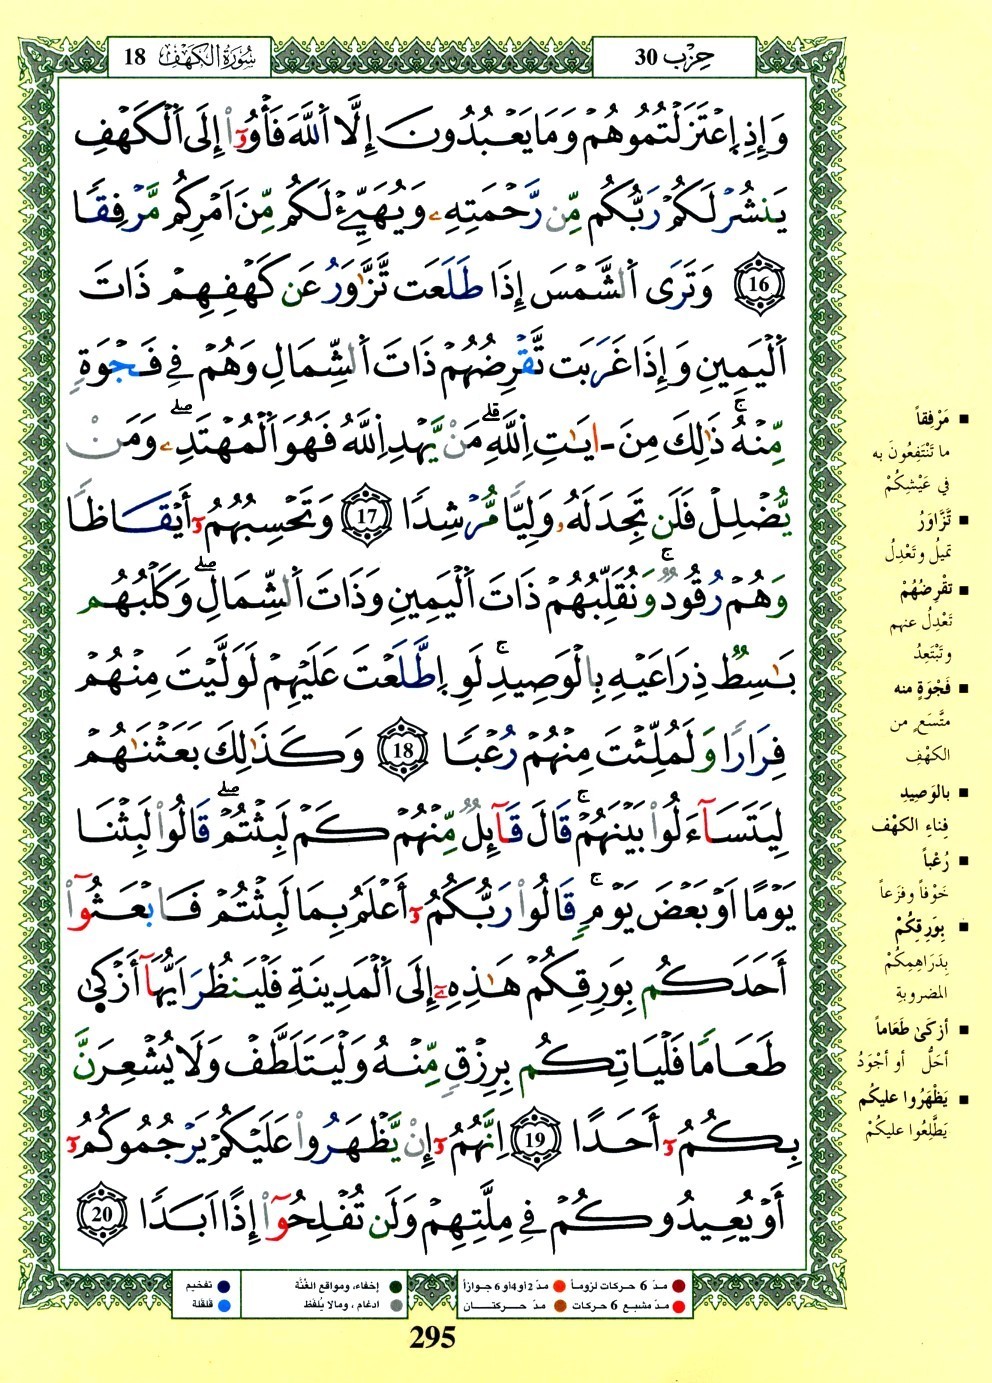 سُورَةُ الكَهْف 18
حِزْب 30
وَإِذِ اِ۪عْتَزَلْتُمُوهُمْ وَمَا يَعْبُدُونَ إِلَّا اَ۬للَّهَ فَأْوُۥٓاْ إِلَى اَ۬لْكَهْفِ
يَنشُرْ لَكُمْ رَبُّكُم مِّن رَّحْمَتِهِۦ وَيُهَيِّئْ لَكُم مِّنَ اَمْرِكُم مَّرْفِقًا
16 وَتَرَى اَ۬لشَّمْسَ إِذَا طَلَعَت تَّزَّٰوَرُ عَن كَهْفِهِمْ ذَاتَ
اَ۬لْيَمِينِ وَإِذَا غَرَبَت تَّقْرِضُهُمْ ذَاتَ اَ۬لشِّمَالِ وَهُمْ فِي فَجْوَةٍ
مِّنْهُۚ ذَٰلِكَ مِنَ ـ ايَٰتِ اِ۬للَّهِۗ مَنْ يَّهْدِ اِ۬للَّهُ فَهُوَ اَ۬لْمُهْتَدِۦۖ وَمَنْ
يُّضْلِلْ فَلَن تَجِدَ لَهُۥ وَلِيًّا مُّرْشِدًا 17 وَتَحْسِبُهُمُۥٓ أَيْقَاظًا
وَهُمْ رُقُودٌۚ وَنُقَلِّبُهُمْ ذَاتَ اَ۬لْيَمِينِ وَذَاتَ اَ۬لشِّمَالِۖ وَكَلْبُهُم
بَٰسِطٌ ذِرَاعَيْهِ بِالْوَصِيدِۚ لَوِ اِ۪طَّلَعْتَ عَلَيْهِمْ لَوَلَّيْتَ مِنْهُمْ
فِرَارًا وَلَمُلِّئْتَ مِنْهُمْ رُعْبًا 18 وَكَذَٰلِكَ بَعَثْنَٰهُمْ
لِيَتَسَآءَلُواْ بَيْنَهُمْۚ قَالَ قَآئِلٌ مِّنْهُمْ كَمْ لَبِثْتُمْۖ قَالُواْ لَبِثْنَا
يَوْمًا اَوْ بَعْضَ يَوْمٍۚ قَالُواْ رَبُّكُمُۥٓ أَعْلَمُ بِمَا لَبِثْتُمْ فَابْعَثُوٓاْ
أَحَدَكُم بِوَرِقِكُمْ هَٰذِهِۦٓ إِلَى اَ۬لْمَدِينَةِ فَلْيَنظُرَ اَيُّهَآ أَزْكَىٰ
طَعَامًا فَلْيَاتِكُم بِرِزْقٍ مِّنْهُ وَلْيَتَلَطَّفْ وَلَا يُشْعِرَنَّ
بِكُمُۥٓ أَحَدًا 19 اِنَّهُمُۥٓ إِنْ يَّظْهَرُواْ عَلَيْكُمْ يَرْجُمُوكُمُۥٓ
أَوْ يُعِيدُوكُمْ فِي مِلَّتِهِمْ وَلَن تُفْلِحُوٓاْ إِذًا اَبَدًا 20
■ مَرْفِقاً
ما تَنْتَفِعُونَ به
في عَيْشِكُمْ
■ تَّزَّاوَرُ
تَمِيلُ وتَعْدِلُ
■ تقْرِضُهُمْ
تَعْدِلُ عنهم
وتَبْتَعِدُ
■ فَجْوَةٍ منه
متَّسَعٍ من
الكهْفِ
■ بالوَصِيدِ
فِناءِ الكهْف
■ رُعْباً
خَوْفاً وفزَعاً
■ بِوَرِقِكُمْ
بِدَرَاهِمِكُمْ
المضروبةِ
■ أزكَىٰ طَعَاماً
أحَلُّ أو أجْوَدُ
■ يَظْهَرُوا عليكُم
يَطَّلِعُوا عليكُمْ
مدّ 6 حركات لزوماً مدّ 2 أو 4 أو 6 جوازاً
مدّ مشبع 6 حركات مدّ حركتــان
إخفاء، ومواقع الغُنَّة
ادغام، ومالا يُلفَظ
تفخيم
قلقلة
295